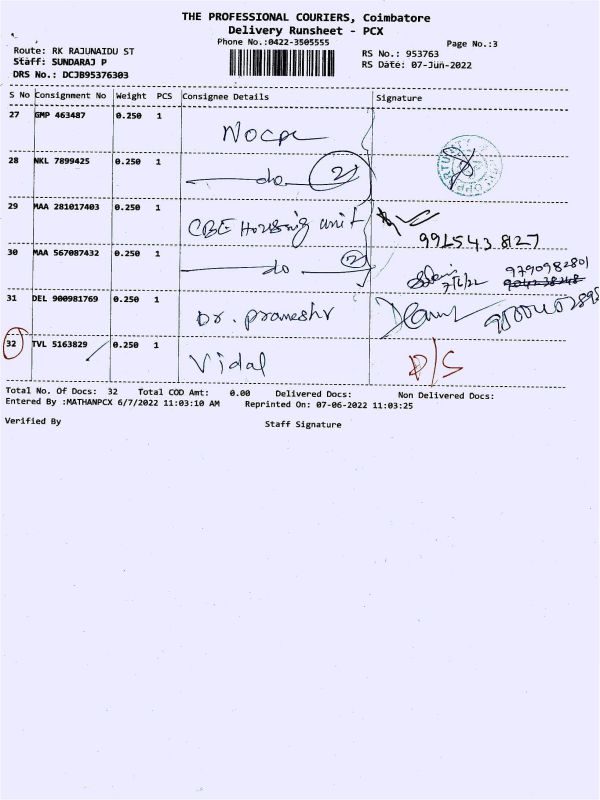 THE PROFESSIONAL COURIERS, Coimbatore
Delivery Runsheet - PCX
Phone No.:0422-3505555
Page No.:3
Route: RK RAJUNAIDU ST
RS No.: 953763
Staff: SUNDARAJ P
RS Date: 07-Jun-2022
DRS No.: DCJB95376303
S No Consignment No Weight PCS Consignee Details Signature
27 GMP 463487 0.250 1
28 NKL 7899425 0.250 1 do 2
29 MAA 281017403 0.250 1 CBE Housing unit 9915438127
30 MAA 567087432 0.250 1 do 2 7/6/22 9790982801
31 DEL 900981769 0.250 1 Dr. prameshr
32 TVL 5163829 0.250 1 Vidal D/S
Total No. Of Docs: 32 Total COD Amt: 0.00 Delivered Docs: Non Delivered Docs:
Entered By :MATHANPCX 6/7/2022 11:03:10 AM Reprinted On: 07-06-2022 11:03:25
Verified By Staff Signature